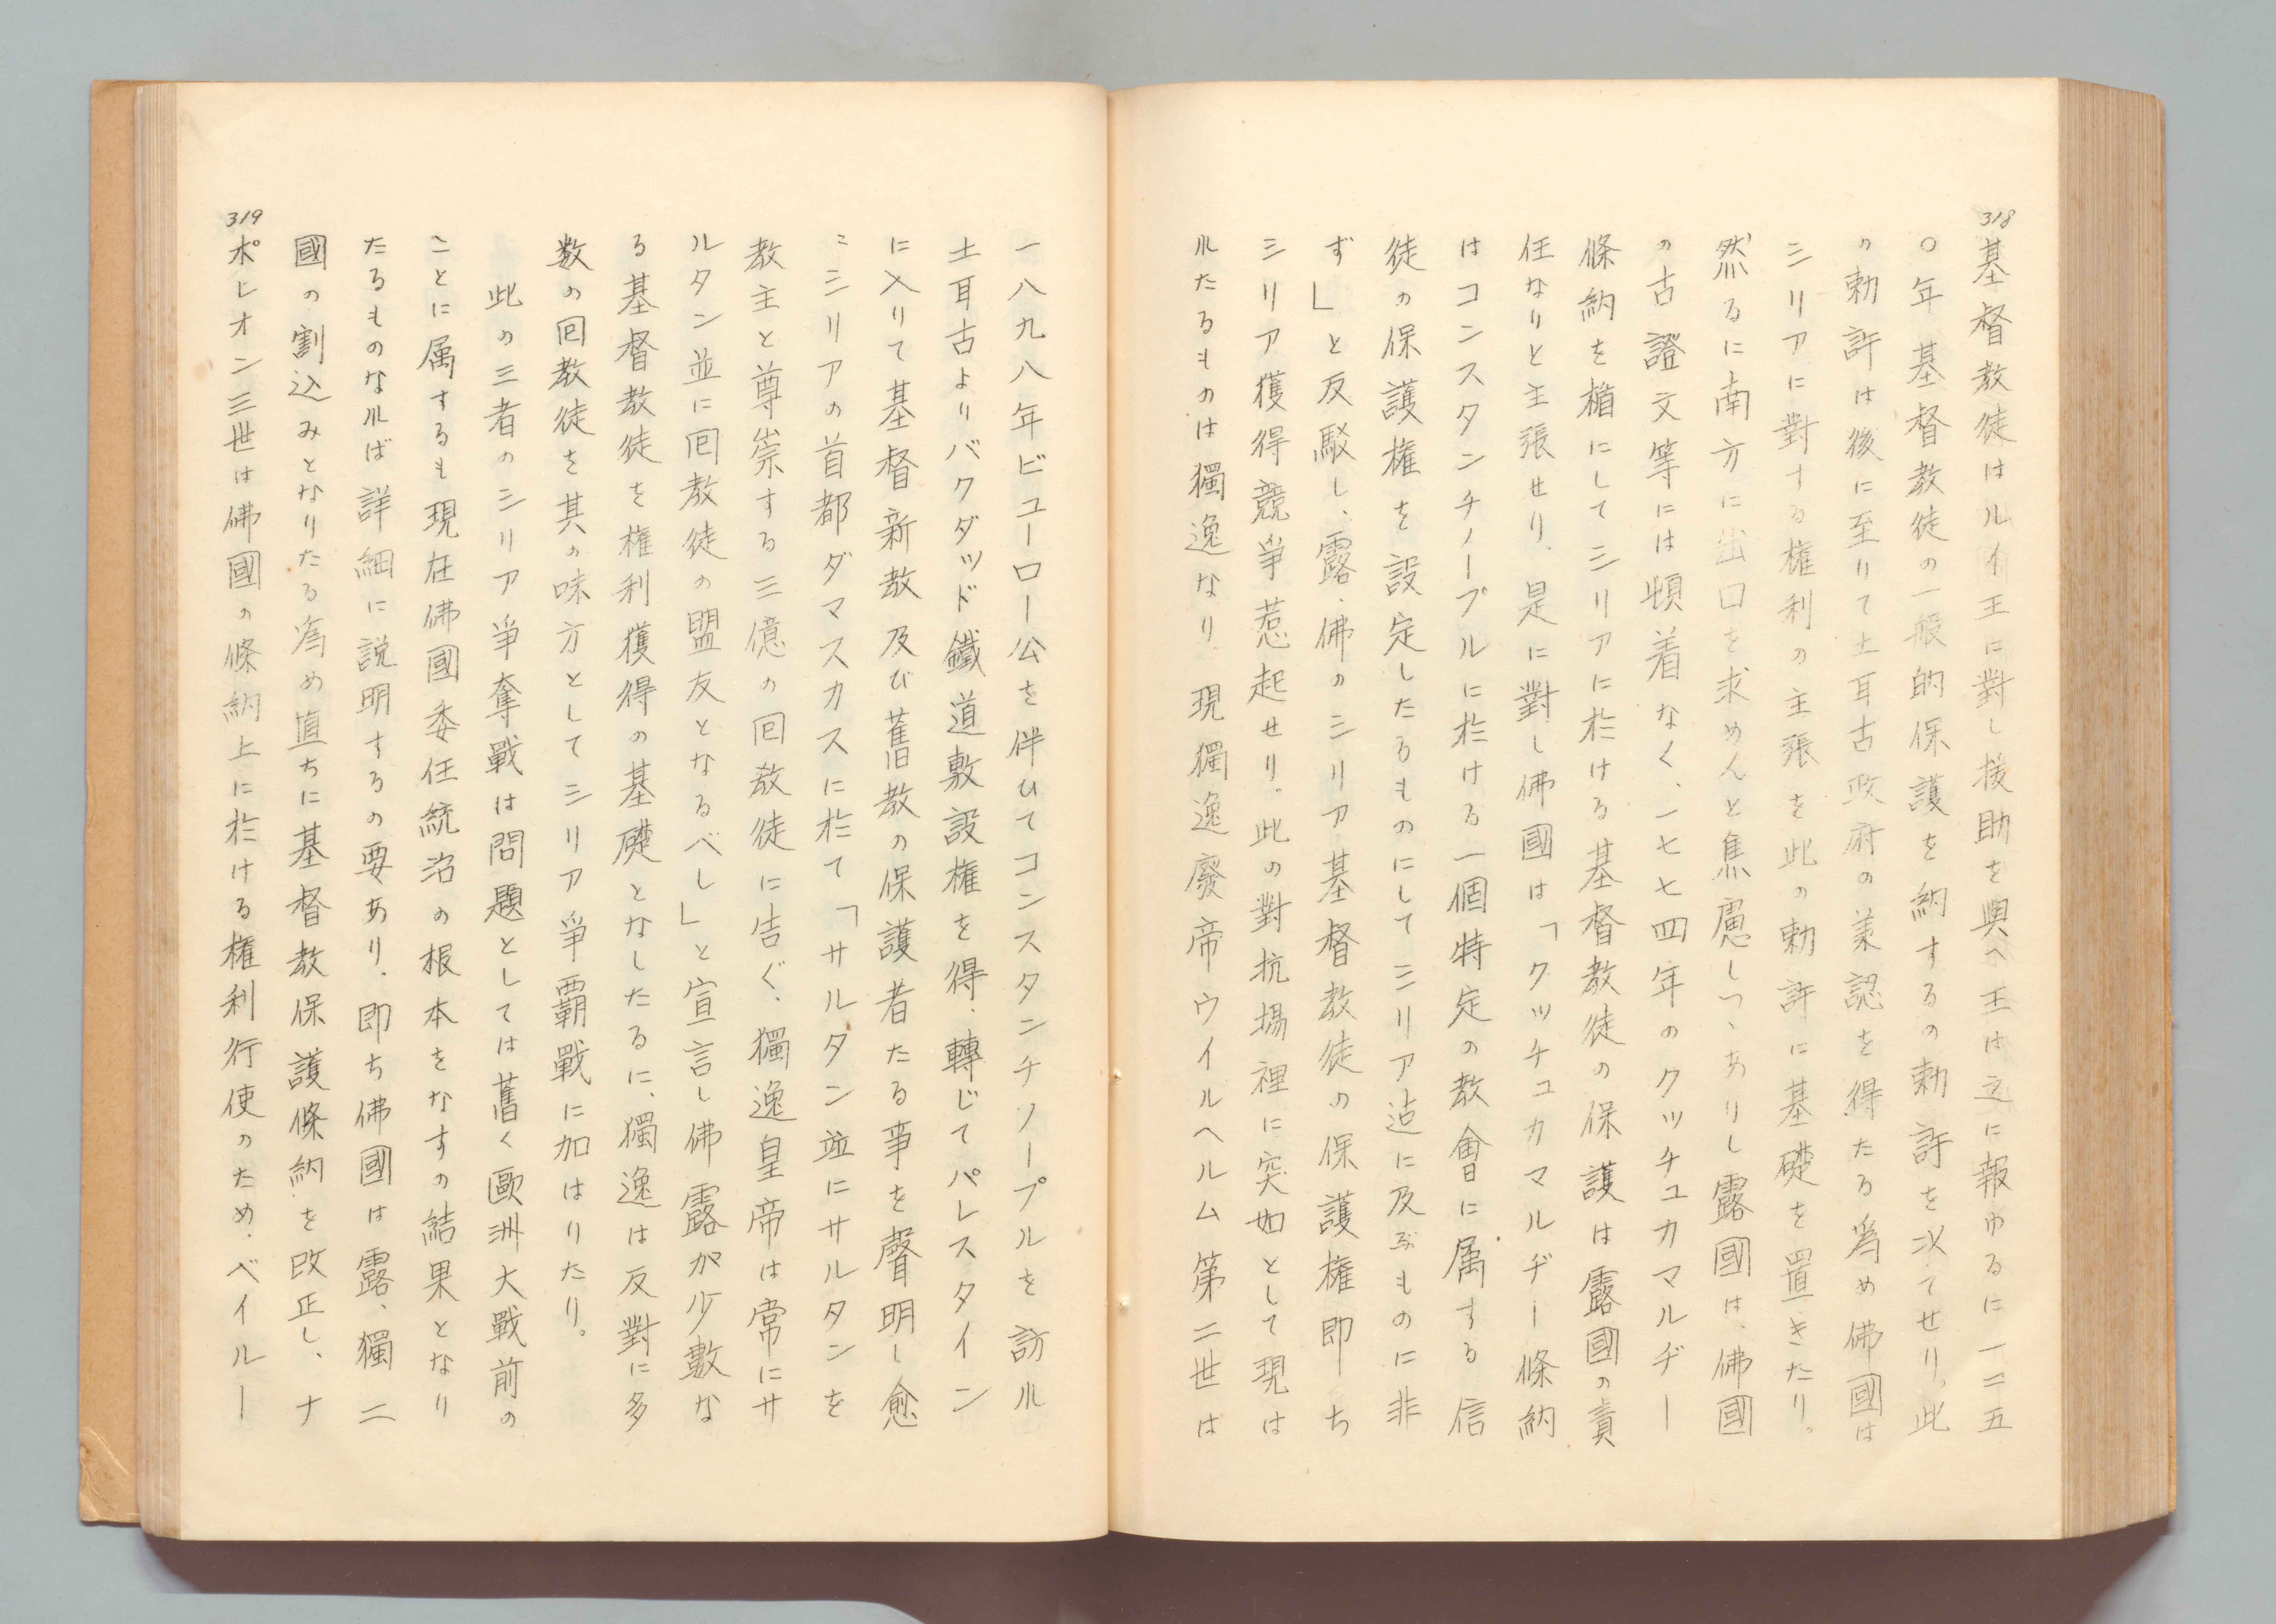 318
基督教徒はルイ王に對し援助を與へ王は之に報ゆるに一二五
〇年基督教徒の一般的保護を納するの勅許を以てせり。此
の勅許は後に至りて土耳古政府の美認を得たる爲め佛國は
シリアに對する権利の主張を此の勅許に基礎を置きたり。
然るに南方に出口を求めんと焦慮しつゝありし露國は、佛國
の古證文等には頓着なく、一七七四年のクッチュカマルヂー
條納を楯にしてシリアに於ける基督教徒の保護は露國の責
任なりと主張せり、是に對し佛國は「クッチュカマルヂー條納
はコンスタンチノープルに於ける一個特定の教會に属する信
徒の保護権を設定したるものにしてシリア迠に及ぶものに非
ず」と反駁し、露、佛のシリア基督教徒の保護権即ち
シリア獲得競爭惹起せり。此の對抗場裡に突如として現は
ルたるものは獨逸なり、現獨逸廢帝ウイルヘルム第二世は
一八九八年ビューロー公を伴ひてコンスタンチノープルを訪ル
土耳古よりバクダッド鐵道敷設権を得、轉じてパレスタイン
に入りて基督新教及び舊教の保護者たる事を聲明し愈
ミシリアの首都ダマスカスに於て「サルタン並にサルタンを
教主と尊崇する三億の囘教徒に告ぐ、獨逸皇帝は常にサ
ルタン並に囘教徒の盟友となるべし」と宣言し佛露が少數な
る基督教徒を権利獲得の基礎となしたるに、獨逸は反對に多
数の囘教徒を其の味方としてシリア爭覇戰に加はりたり。
此の三者のシリア爭奪戰は問題としては舊く歐洲大戰前の
ことに属するも現在佛國委任統治の根本をなすの結果となり
たるものなルば詳細に説明するの要あり、即ち佛國は露、獨二
國の割込みとなりたる爲め直ちに基督教保護條納を改正し、ナ
ポレオン三世は佛國の條納上に於ける権利行使のため、ベイルー
319